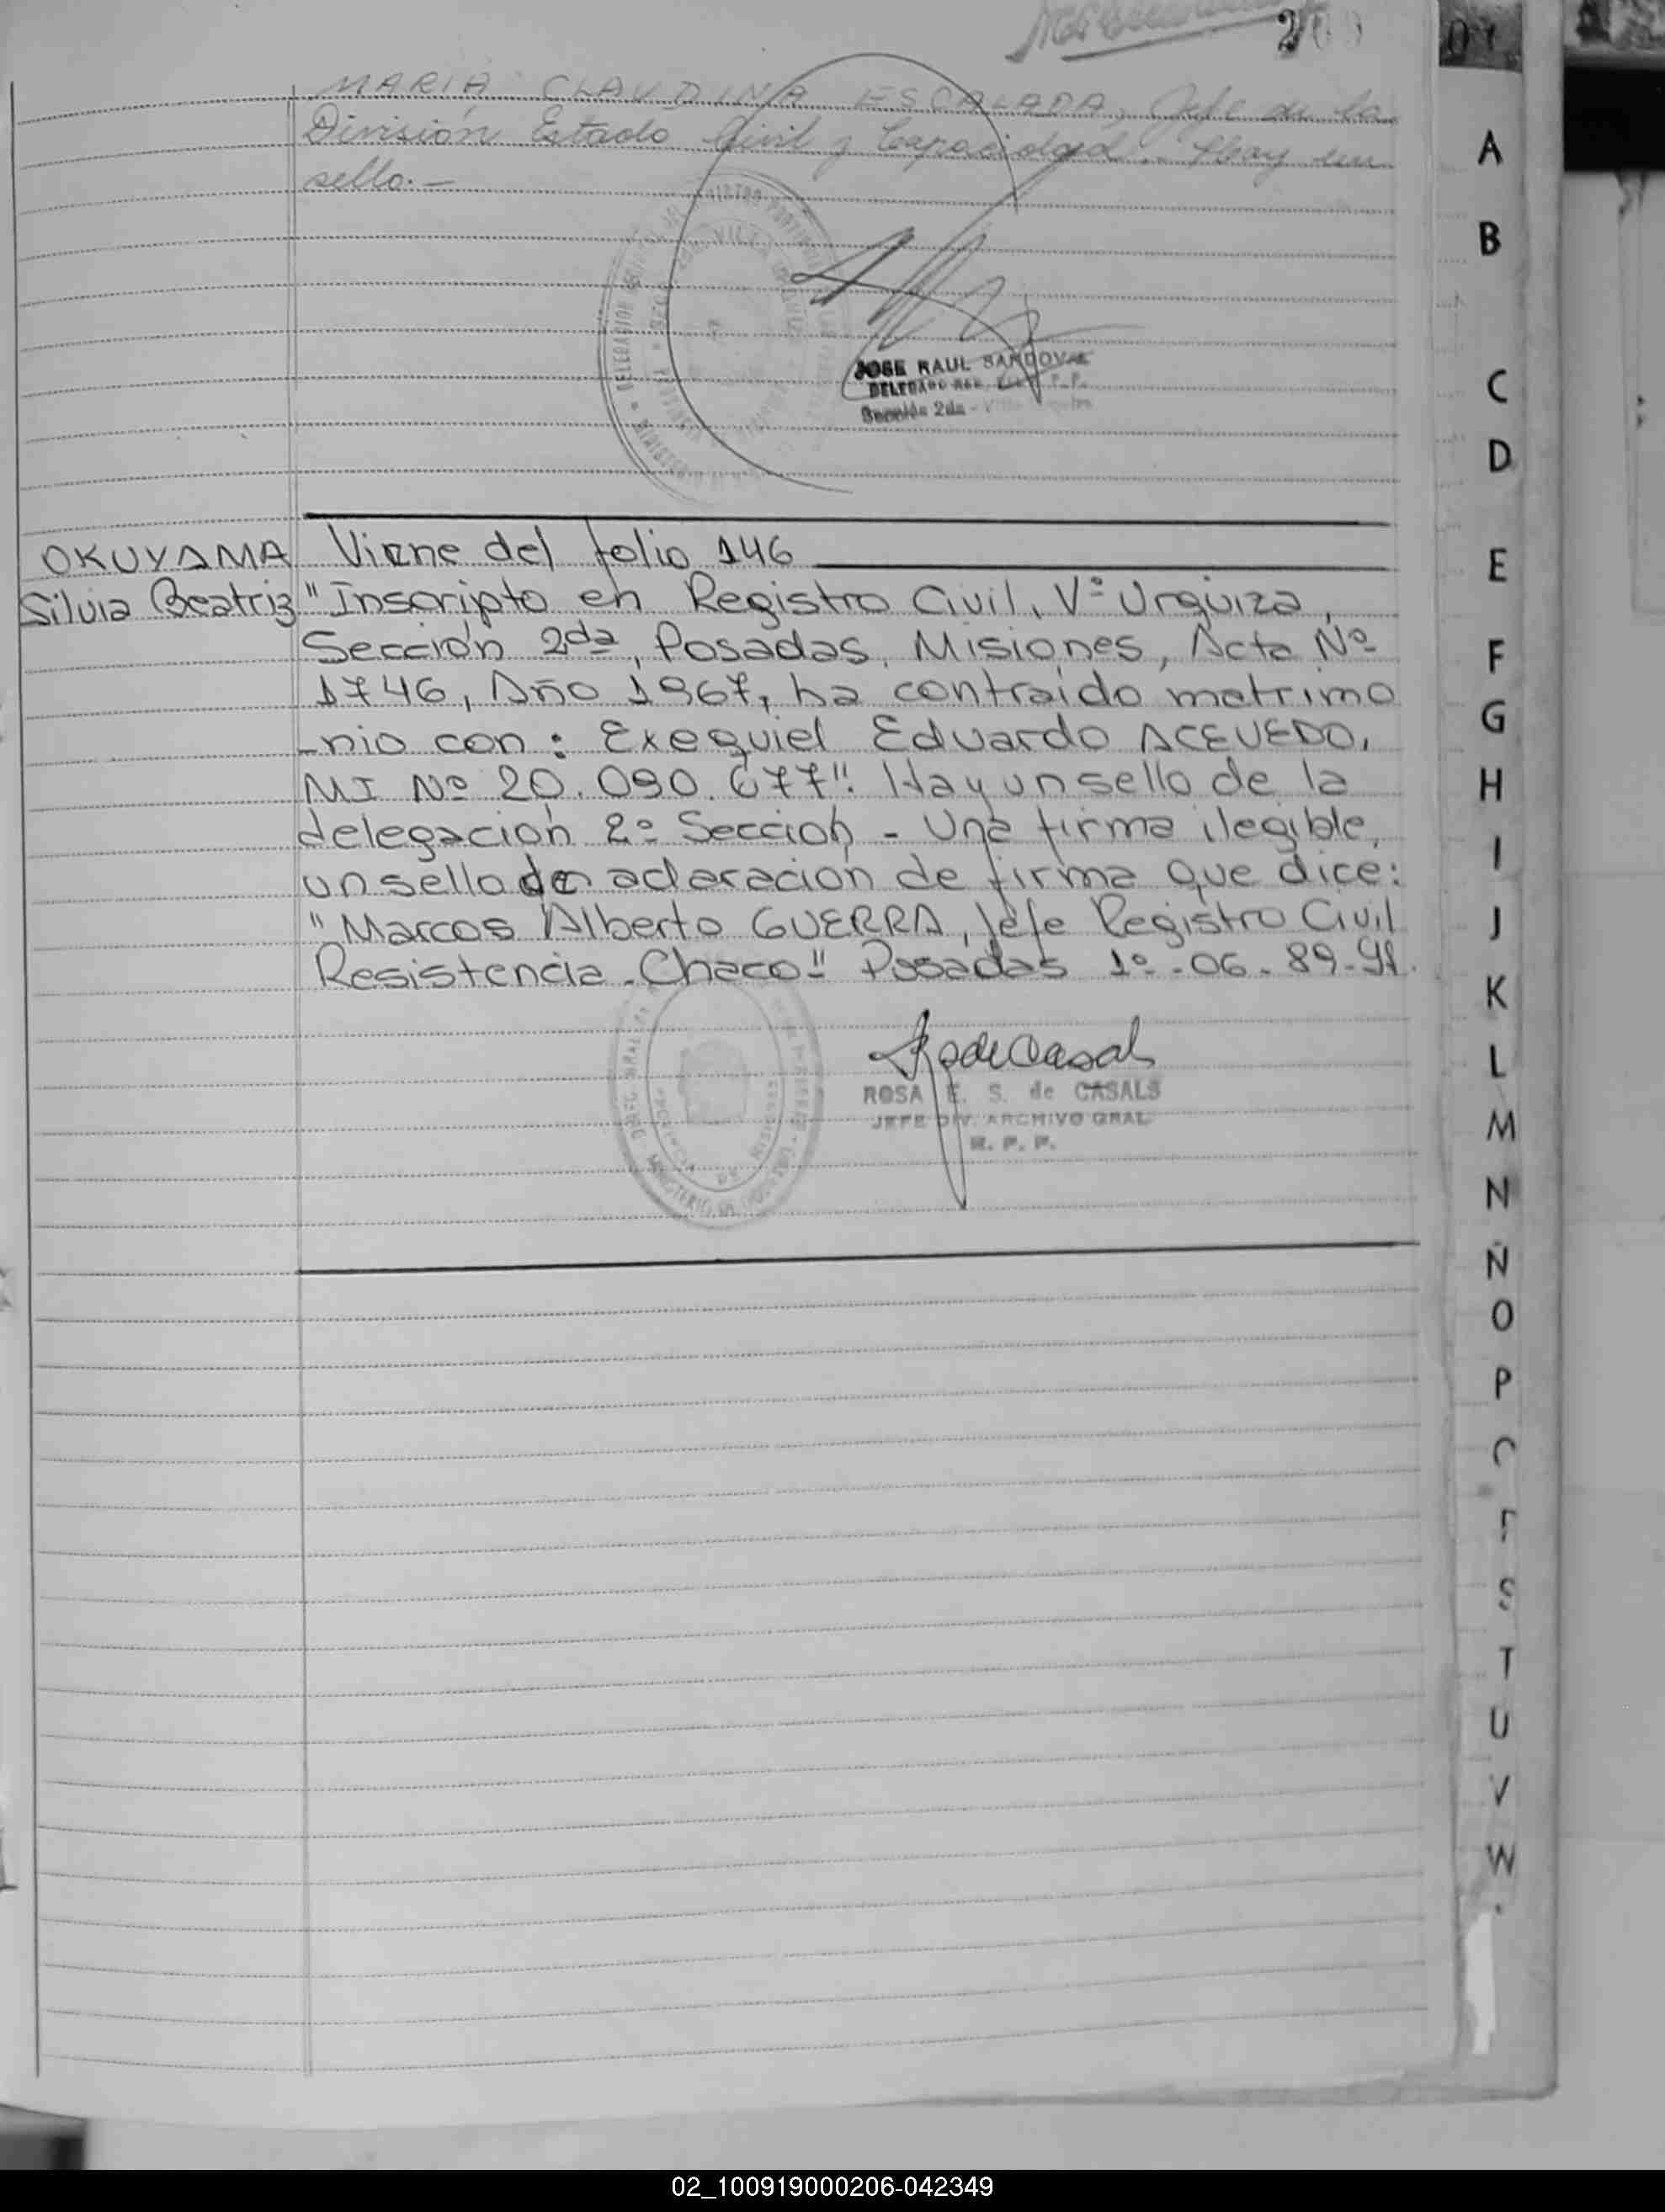 MARIA CLAUDINA ESCALADA, Jefe de la
División Estado Civil y Capacidad. Hay un
sello.-
JOSE RAUL SANDOVAL
DELEGADO
Sección 2da -
OKUYAMA Viene del folio 146
Silvia Beatriz "Inscripto en Registro Civil, Vª Urquiza,
Sección 2da, Posadas, Misiones, Acta Nº
1746, Año 1967, ha contraido matrimo
-nio con: Exequiel Eduardo ACEVEDO,
MI Nº 20.090.677". Hay un sello de la
delegación 2º Sección - Una firma ilegible,
un sello de aclaracion de firma que dice:
"Marcos Alberto GUERRA, Jefe Registro Civil
Resistencia - Chaco" Posadas 1º-06-89-
ROSA E. S. de CASALS
JEFE DIV. ARCHIVO GRAL
R. P. P.
PROVINCIA DE MISIONES
A
B
C
D
E
F
G
H
I
J
K
L
M
N
Ñ
O
P
S
T
U
V
W
02_100919000206-042349